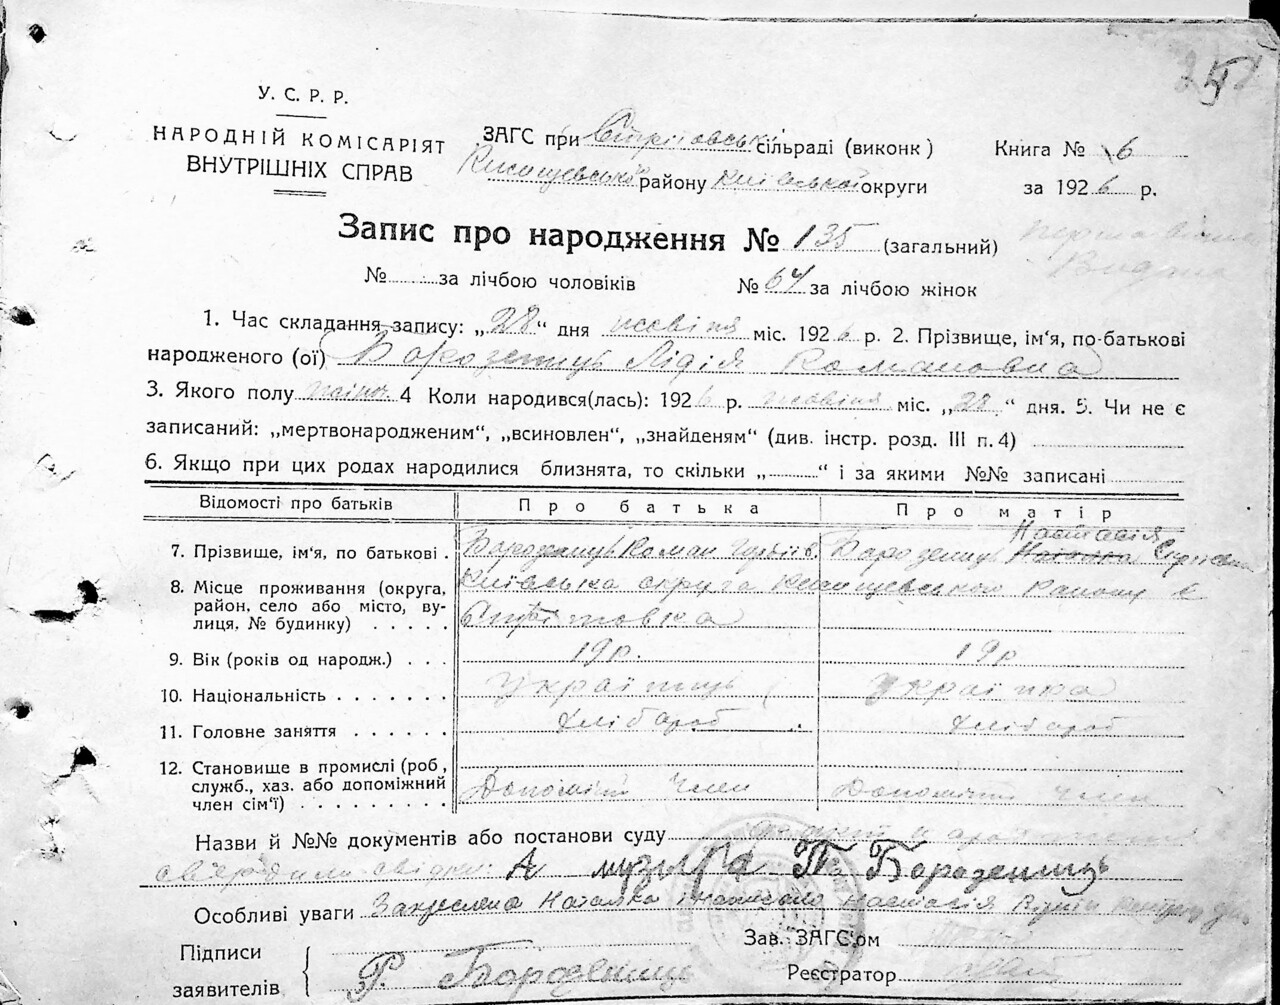 251
У. С. Р. Р.
НАРОДНІЙ КОМІСАРІЯТ
ВНУТРІШНІХ СПРАВ
ЗАГС при Стрітовські сільраді (виконк)
району Київської округи
Книга № 6
за 1926 р.
Запис про народження № 135 (загальний)
№ за лічбою чоловіків № 64 за лічбою жінок
1. Час складання запису: „28“ дня жовтня міс. 1926 р. 2. Прізвище, ім‘я, по-батькові
народженого (ої) Бородениць Лідія Романовна
3. Якого полу жіноч 4 Коли народився(лась): 1926 р. жовтня міс. „28“ дня. 5. Чи не є
записаний: „мертвонародженим“, „всиновлен“, „знайденям“ (див. інстр. розд. III п. 4)
6. Якщо при цих родах народилися близнята, то скільки „ “ і за якими №№ записані
Відомості про батьків Про батька Про матір
7. Прізвище, ім‘я, по батькові . Бородениць Роман Бородениць Настасія
8. Місце проживання (округа, район, село або місто, вулиця, № будинку) . . . . .
Київська округа району с
9. Вік (років од народж.) . . . 19 р. 19 р
10. Національність . . . . . . . Українець Українка
11. Головне заняття . . . . . . Хлібороб Хлібороб
12. Становище в промислі (роб, служб., хаз. або допоміжний член сім‘ї) . . . . . . . . .
Допоміжн член Допоміжн член
Назви й №№ документів або постанови суду
свідки: А музыра Бородениць
Особливі уваги Закреслено Наталка і написано Настасія
Підписи
заявителів
Р. Бородениць
Зав. ЗАГС‘ом
Реєстратор